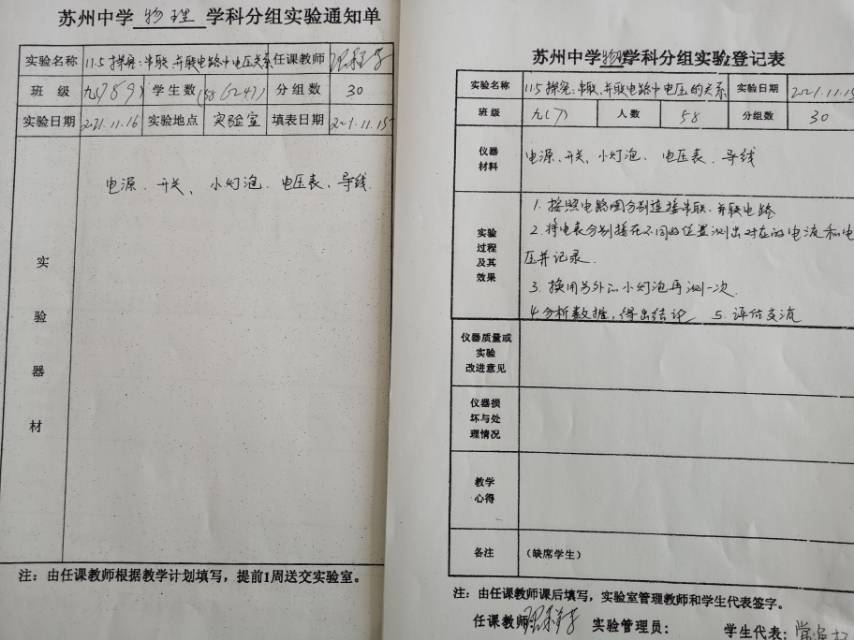 苏州中学 物理 学科分组实验通知单
实验名称 11.5探究:串联、并联电路中电压关系 任课教师
班 级 九(7 8 9) 学生数 (58 62 47) 分组数 30
实验日期 2021.11.16 实验地点 实验室 填表日期 2021.11.15
实验器材 电源、开关、小灯泡、电压表、导线
注：由任课教师根据教学计划填写，提前1周送交实验室。
苏州中学物理学科分组实验登记表
实验名称 11.5探究:串联、并联电路中电压的关系 实验日期 2021.11.15
班级 九(7) 人数 58 分组数 30
仪器材料 电源、开关、小灯泡、电压表、导线
实验过程及其效果
1. 按照电路图分别连接串联、并联电路
2. 将电表分别接在不同的位置测出对应的电流和电
压并记录.
3. 换用另外的小灯泡再测一次.
4. 分析数据，得出结论 5. 评估交流
仪器质量或
实验
改进意见
仪器损
坏与处
理情况
教学
心得
备注 （缺席学生）
注：由任课教师课后填写，实验室管理教师和学生代表签字。
任课教师 实验管理员： 学生代表：